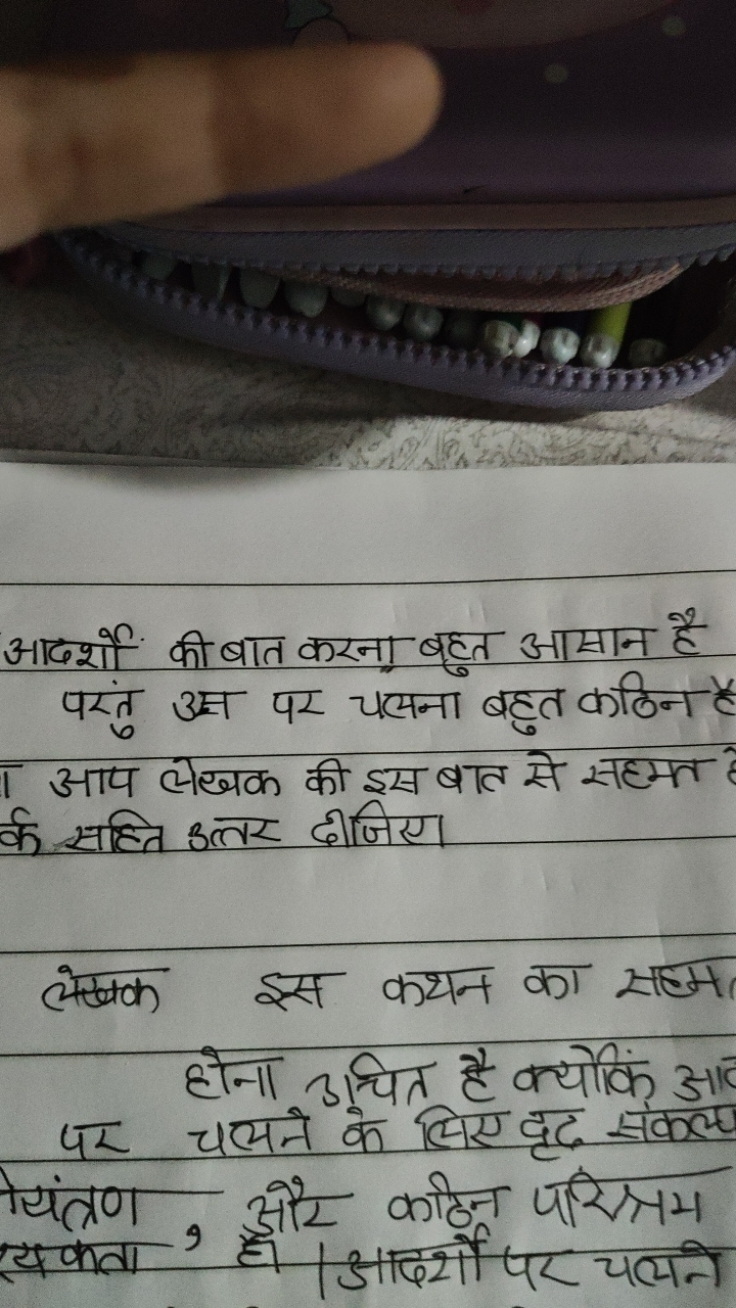 आदर्शों की बात करना बहुत आसान है
परंतु उस पर चलना बहुत कठिन है
आप लेखक की इस बात से सहमत
सहित उत्तर दीजिए।
लेखक इस कथन का सहमत
होना उचित है क्योंकिं
पर चलने के लिए दृढ संकल्प
और कठिन परिश्रम
है। आदर्शों पर चलने